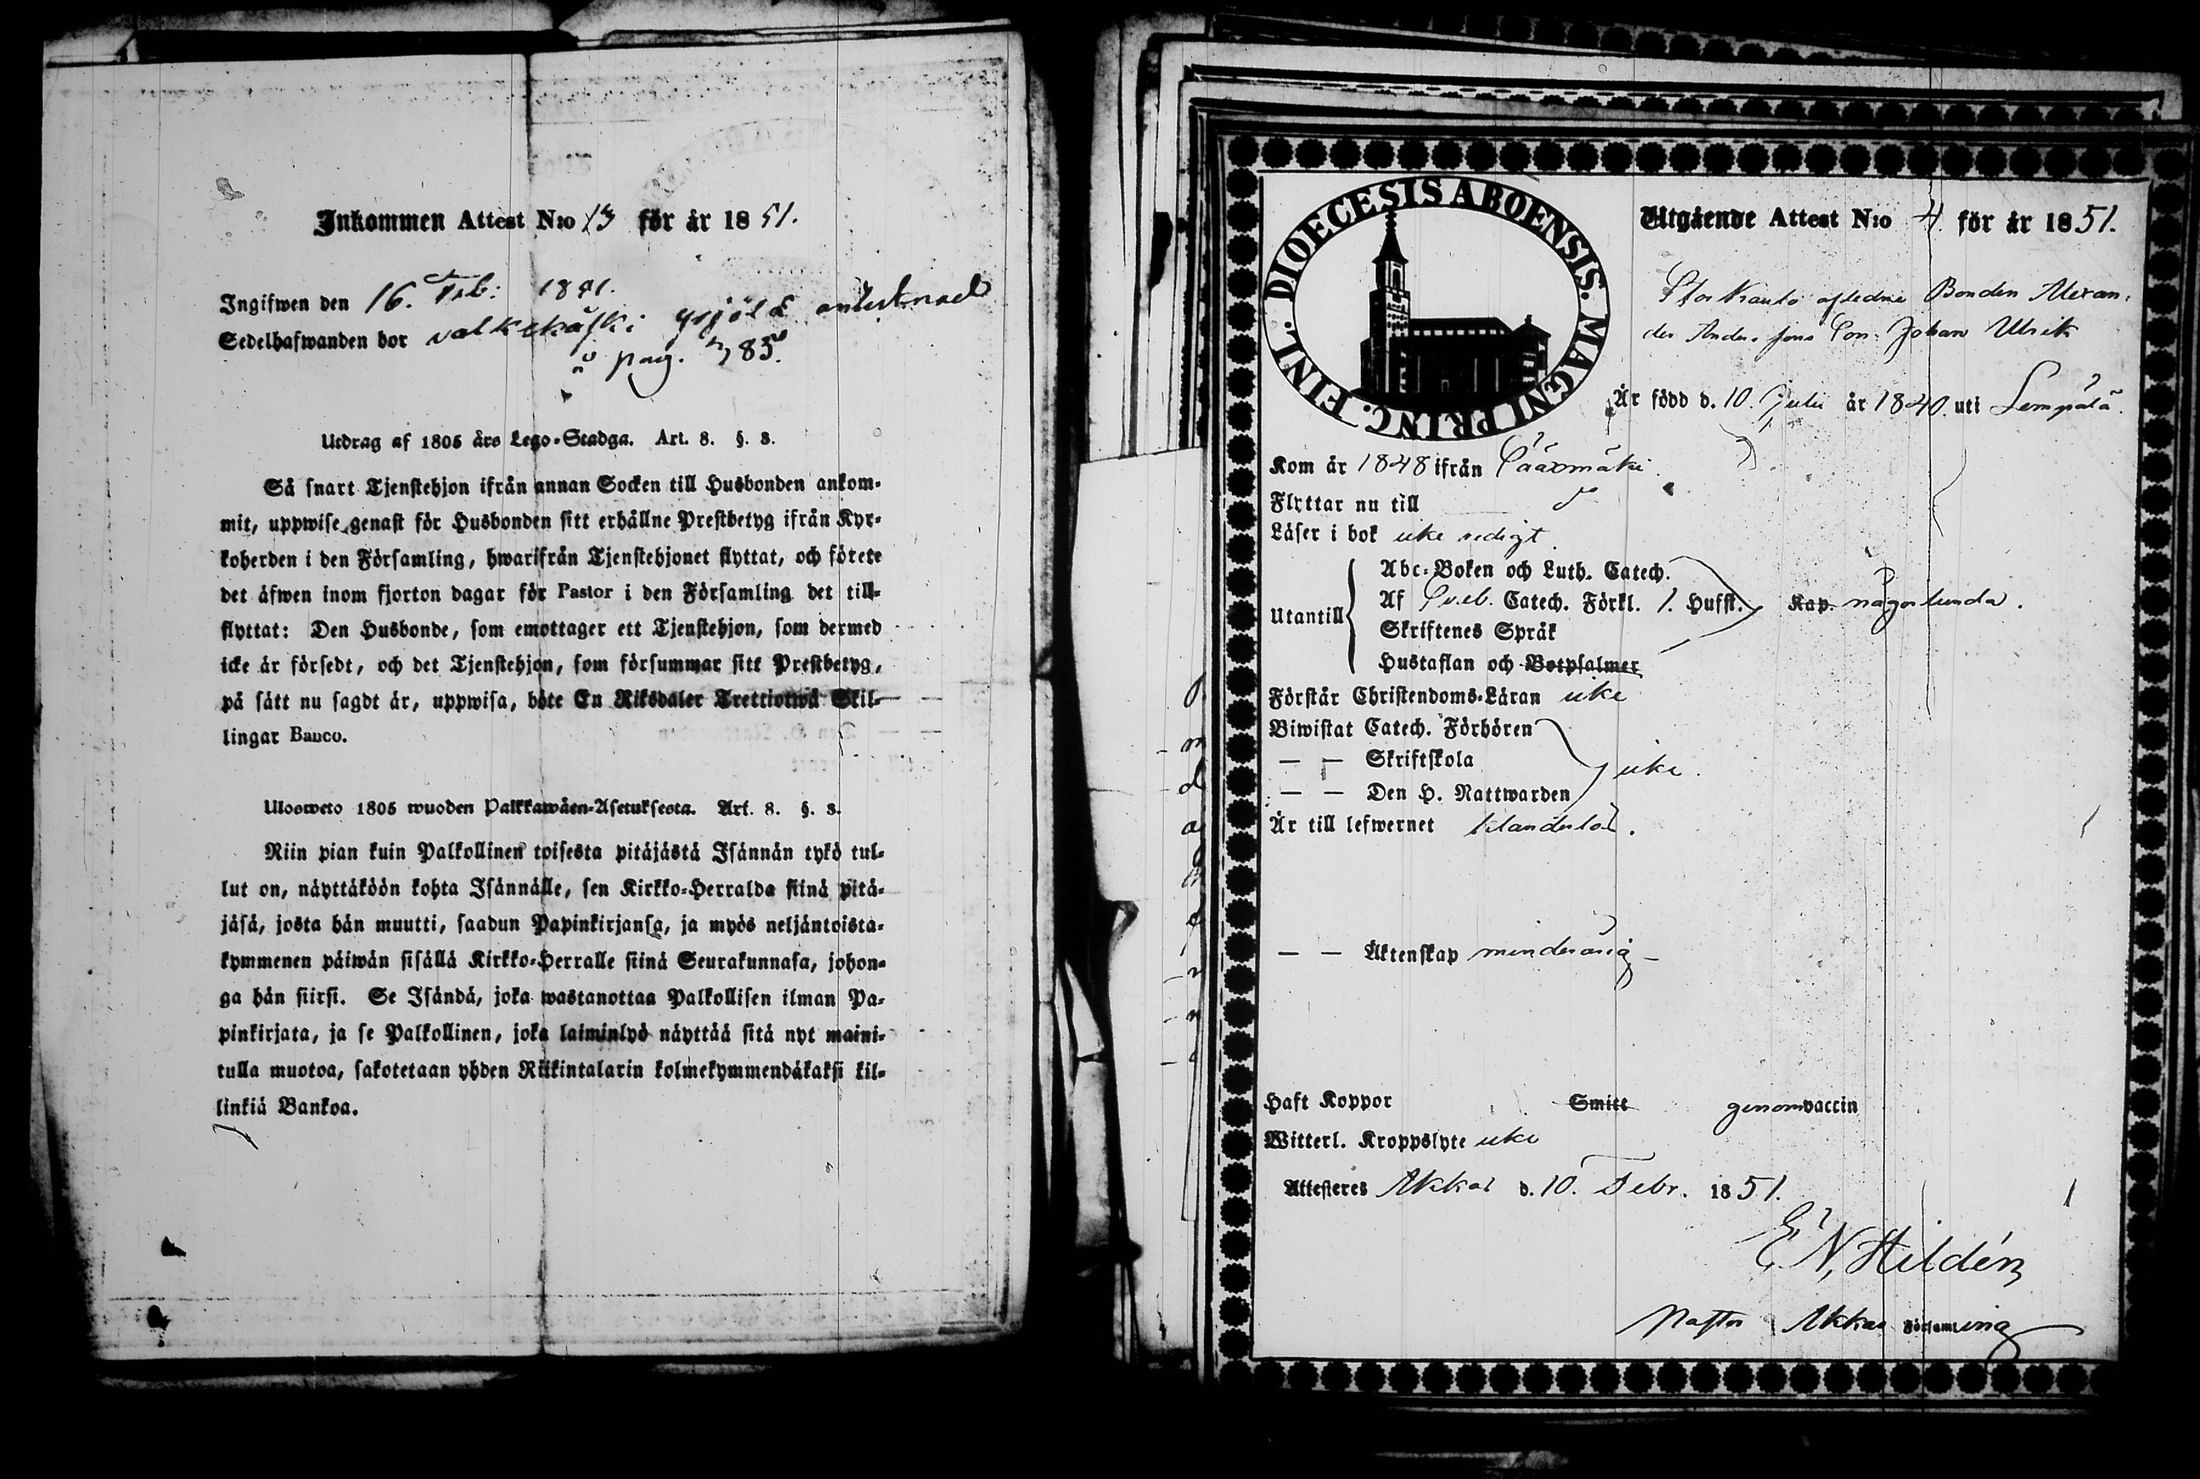 Inkommen Attest N:o 13 för år 1851.
Ingifwen den 16. Feb: 1851.
Sedelhafwanden bor antecknad
å pag. 385.
Utdrag af 1805 års Lego-Stadga. Art. 8. §. 3.
Så snart Tjenstehjon ifrån annan Socken till Husbonden ankom-
mit, uppwise genast för Husbonden sitt erhållne Prestbetyg ifrån Kyr-
koherden i den Församling, hwarifrån Tjenstehjonet flyttat, och förete
det äfwen inom fjorton dagar för Pastor i den Församling det till-
flyttat: Den Husbonde, som emottager ett Tjenstehjon, som dermed
icke är försedt, och det Tjenstehjon, som försummar sitt Prestbetyg,
på sätt nu sagdt är, uppwisa, böte En Riksdaler Trettiotwå Skil-
lingar Banco.
Ulosweto 1805 wuoden Palkkawäen-Asetuksesta. Art. 8. §. 3.
Niin pian kuin Palkollinen toisesta pitäjästä Isännän tykö tul-
lut on, näyttäköön kohta Isännälle, sen Kirkko-Herralda siinä pitä-
jäsä, josta hän muutti, saadun Papinkirjansa, ja myös neljäntoista-
kymmenen päiwän sisällä Kirkko-Herralle siinä Seurakunnasa, johon-
ga hän siirsi. Se Isändä, joka wastanottaa Palkollisen ilman Pa-
pinkirjata, ja se Palkollinen, joka laiminlyö näyttää sitä nyt maini-
tulla muotoa, sakotetaan yhden Riikintalarin kolmekymmendäkaksi kil-
linkiä Bankoa.
DIOECESIS ABOENSIS. MAGNI PRINC. FINL.
Utgående Attest N:o 4 för år 1851.
afledne Bonden Alexan-
der Anders sons Son Johan Ulrik
Är född d. 10. Julii år 1840. uti Lempälä.
Kom år 1848 ifrån Sääxmäki
Flyttar nu till
Läser i bok icke redigt
Utantill
Abc-Boken och Luth. Catech.
Af Sveb. Catech. Förkl. 1. Hufst. Kap. någorlunda.
Skriftenes Språk
Hustaflan och Botpsalmer
Förstår Christendoms-Läran icke
Biwistat Catech. Förhören
— — Skriftskola icke.
— — Den H. Nattwarden
Är till lefwernet klanderlös.
— — Äktenskap minderårig
Haft Koppor Smitt genom vaccin
Witterl. Kroppslyte icke
Attesteres Akkas d. 10. Febr. 1851.
E. N. Hildén
Pastor i Akkas Församling